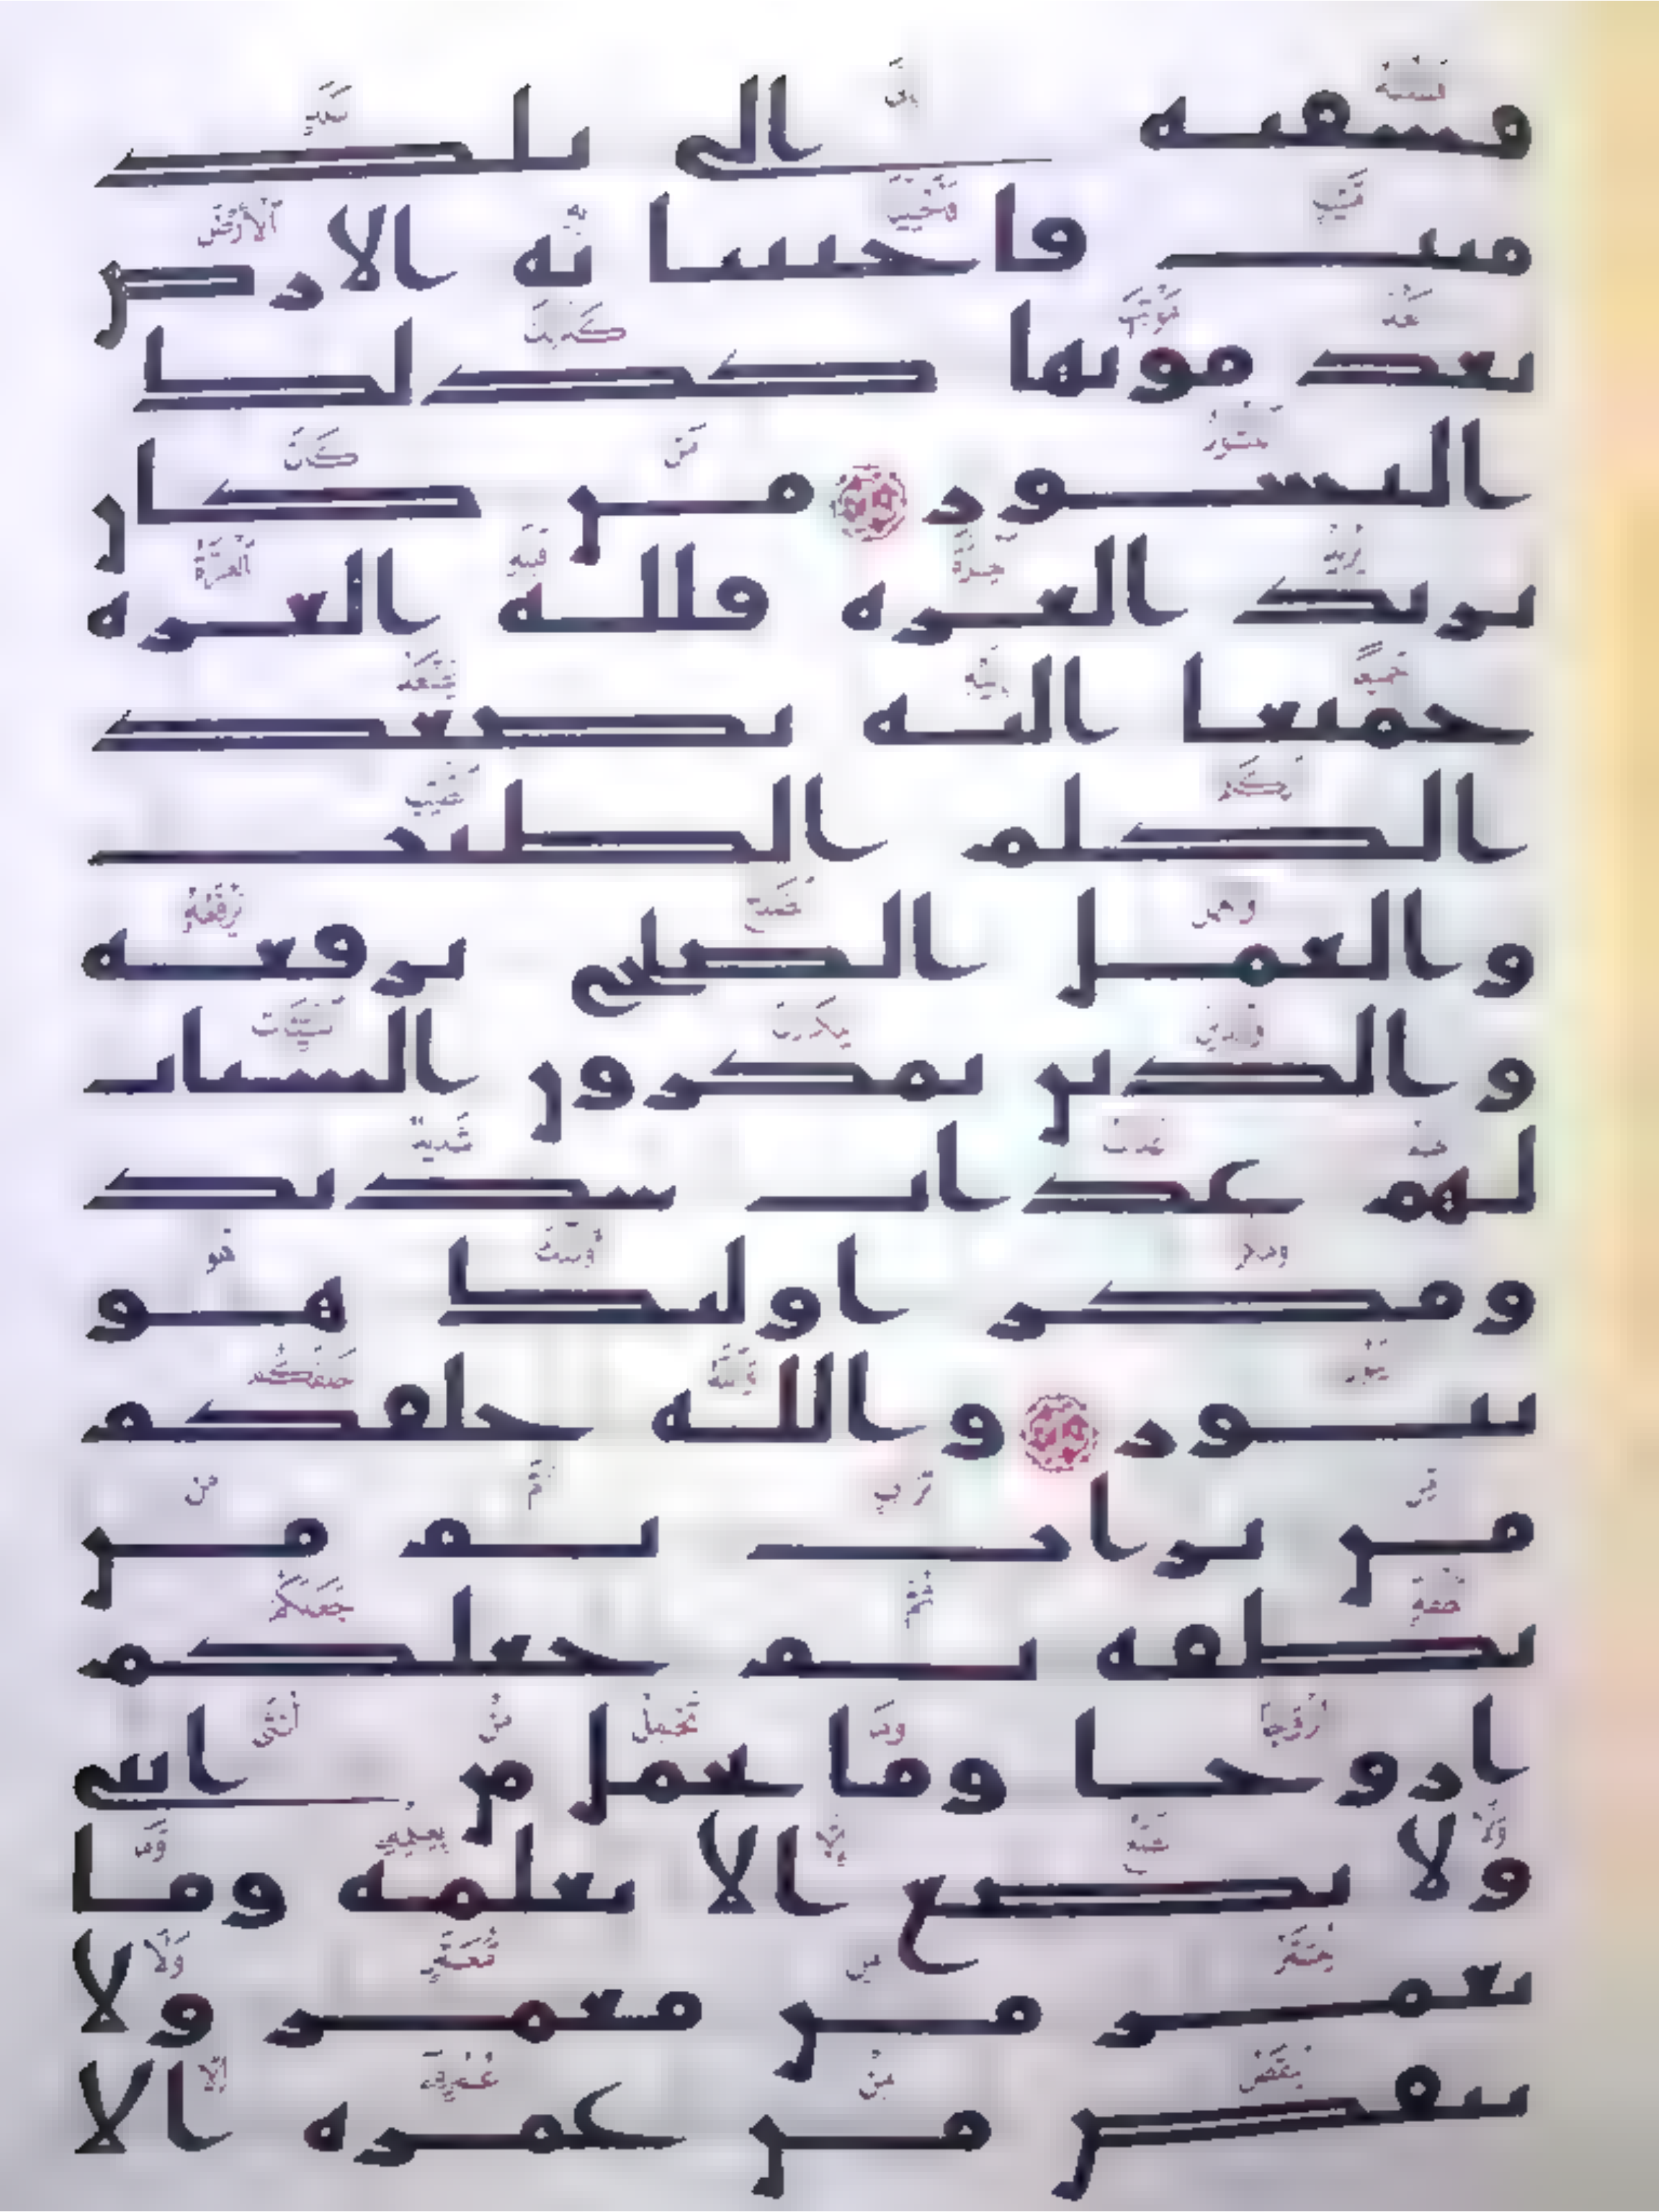 فسقنه الى بلد
ميت فاحيينا به الارض
بعد موتها كذلك
النشور من كان
يريد العزه فلله العزه
جميعا اليه يصعد
الكلم الطيب
والعمل الصلح يرفعه
والذين يمكرون السيات
لهم عذاب شديد
ومكر اوليك هو
يبور والله خلقكم
من تراب ثم من
نطفه ثم جعلكم
ازوجا وما تحمل من انثى
ولا تضع الا بعلمه وما
يعمر من معمر ولا
ينقص من عمره الا